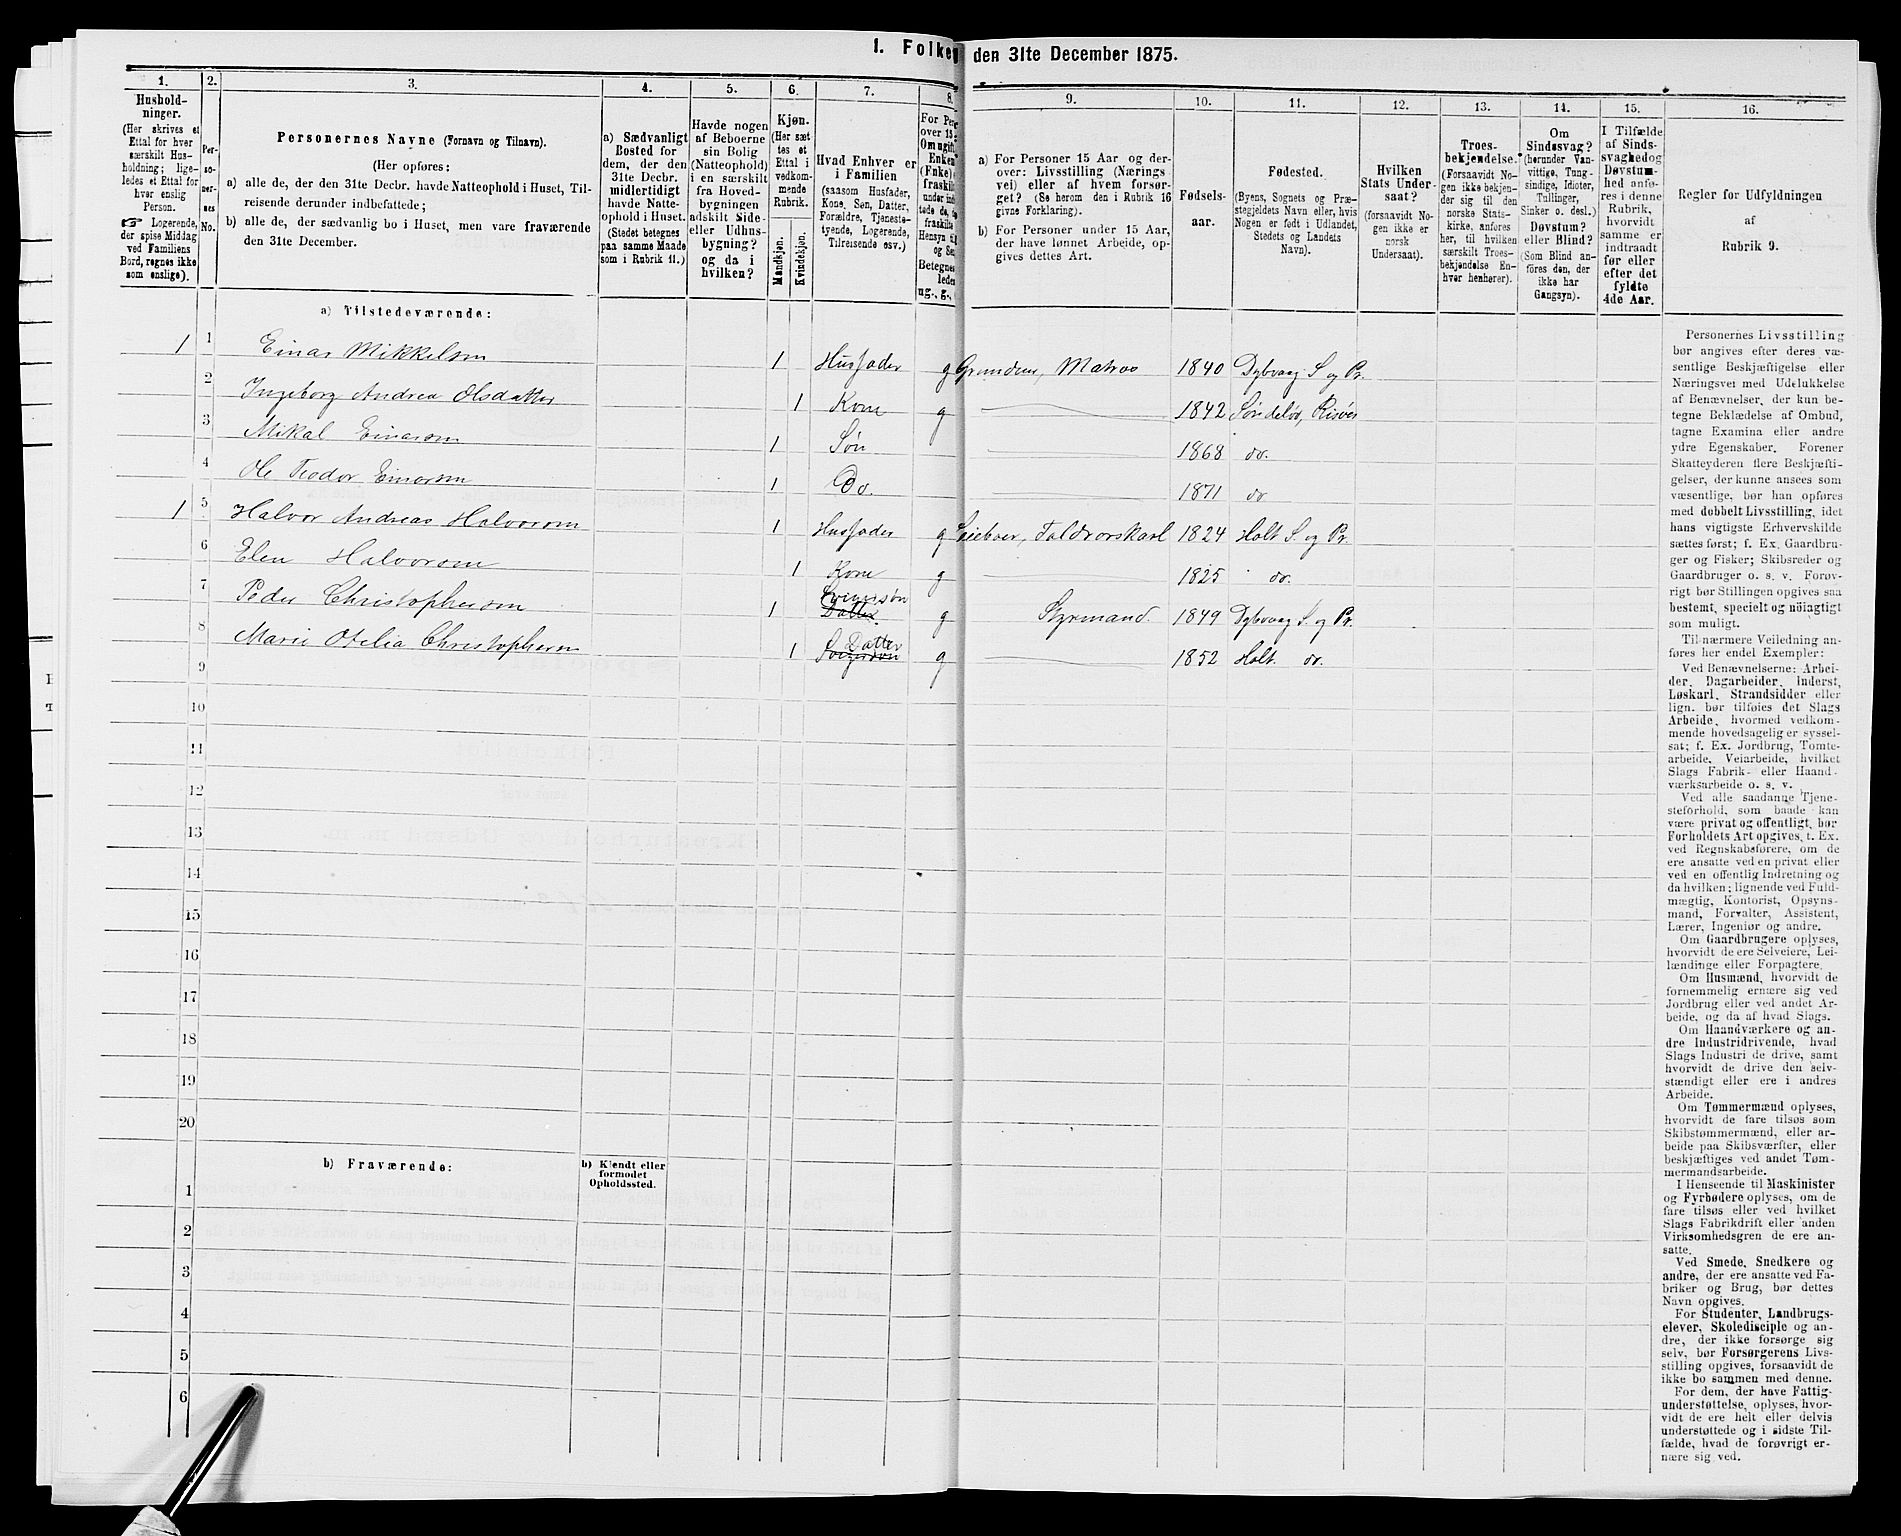 1. Folke
den 31te December 1875.
1.
Hushold-
ninger.
(Her skrives et
Ettal for hver
særskilt Hus-
holdning; lige-
ledes et Ettal for
hver enslig
Person.
☞ Logerende,
der spise Middag
ved Familiens
Bord, regnes ikke
som enslige).
2.
Per-
so-
ner-
nes
No.
3.
Personernes Navne (Fornavn og Tilnavn).
(Her opføres:
a) alle de, der den 31te Decbr. havde Natteophold i Huset, Til-
reisende derunder indbefattede;
b) alle de, der sædvanlig bo i Huset, men vare fraværende
den 31te December.
4.
a) Sædvanligt
Bosted for
dem, der den
31te Decbr.
midlertidigt
havde Natte-
ophold i Huset.
(Stedet betegnes
paa samme Maade
som i Rubrik 11.)
5.
Havde nogen
af Beboerne
sin Bolig
(Natteophold)
i en særskilt
fra Hoved-
bygningen
adskilt Side-
eller Udhus-
bygning?
og da i
hvilken?
6.
Kjøn.
(Her sæt
tes et
Ettal i
vedkom-
mende
Rubrik.
Mandkjøn.
Kvindekjøn.
7.
Hvad Enhver er
i Familien
(saasom Husfader,
Kone, Søn, Datter,
Forældre, Tjeneste-
tyende, Logerende,
Tilreisende osv.)
8.
For Per
over 15
Om ugift
Enken
(Fnke)
fraskilt
under ind
tede de,
fraskilte
Hensyn til
og Se
Betegnes
lede
ug., g.,
9.
a) For Personer 15 Aar og der-
over: Livsstilling (Nærings
vei) eller af hvem forsør-
get? (Se herom den i Rubrik 16
givne Forklaring).
b) For Personer under 15 Aar,
der have lønnet Arbeide, op-
gives dettes Art.
10.
Fødsels-
aar.
11.
Fødested.
(Byens, Sognets og Præ-
stegjeldets Navn eller, hvis
Nogen er født i Udlandet,
Stedets og Landets
Navn).
12.
Hvilken
Stats Under-
saat?
(forsaavidt No-
gen ikke er
norsk
Undersaat).
13.
Troes-
bekjendelse.
(Forsaavidt No-
gen ikke bekjen-
der sig til den
norske Stats-
kirke, anføres
her, til hvilken
særskilt Troes-
bekjendelse En-
hver henhører).
14.
Om
Sindssvag?
(herunder Van-
vittige, Tung-
sindige, Idioter,
Tullinger,
Sinker o. desl.)
Døvstum?
eller Blind?
(Som Blind an-
føres den, der
ikke har
Gangsyn).
15.
I Tilfælde
af Sinds-
svaghed og
Døvstum-
hed anfø-
res i denne
Rubrik,
hvorvidt
samme er
indtraadt
før eller
efter det
fyldte
4de Aar.
16.
Regler for Udfyldningen
af
Rubrik 9.
a) Tilstedeværende:
1 1 Einar Mikkelsen 1 Husfader g Grundeier, Matros 1840 Dybvaag S og Pr.
2 Ingeborg Andrea Olsdatter 1 Kone g 1842 Søndeløv, Risør
3 Mikal Einarsen 1 Søn 1868 do.
4 Ole Teodor Einarsen 1 Do. 1871 do
1 5 Halvor Andreas Halvorsen 1 Husfader g Leieboer, Toldrorskarl 1824 Holt S. og Pr.
6 Elen Halvorsen 1 Kone g 1825 do.
7 Peder Christophersen 1 Svigersøn Datter g Styrmand. 1849 Dybvaag S. og Pr.
8 Marie Otelia Christophersen 1 Datter Svigersøn g 1852 Holt. do.
9
10
11
12
13
14
15
16
17
18
19
20
b) Fraværende:
b) Kjendt eller
formodet
Opholdssted.
1
2
3
4
5
6
Personernes Livsstilling
bør angives efter deres væ-
sentlige Beskjæftigelse eller
Næringsvei med Udelukkelse
af Benævnelser, der kun be-
tegne Beklædelse af Ombud,
tagne Examina eller andre
ydre Egenskaber. Forener
Skatteyderen flere Beskjæfti-
gelser, der kunne ansees som
væsentlige, bør han opføres
med dobbelt Livsstilling, idet
hans vigtigste Erhvervskilde
sættes først; f. Ex. Gaardbru-
ger og Fisker; Skibsreder og
Gaardbruger o. s. v. Forøv-
rigt bør Stillingen opgives saa
bestemt, specielt og nöiagtigt
som muligt.
Til nærmere Veiledning an-
føres her endel Exempler:
Ved Benævnelserne: Arbei-
der, Dagarbeider, Inderst,
Løskarl, Strandsidder eller
lign. bør tilføies det Slags
Arbeide, hvormed vedkom-
mende hovedsagelig er syssel-
sat; f. Ex. Jordbrug, Tomte-
arbeide, Veiarbeide, hvilket
Slags Fabrik- eller Haand-
værksarbeide o. s. v.
Ved alle saadanne Tjene-
steforhold, som baade kan
være privat og offentligt, bør
Forholdets Art opgives, t. Ex.
ved Regnskabsførere, om de
ere ansatte ved en privat eller
ved en offentlig Indretning og
da hvilken; lignende ved Fuld-
mægtig, Kontorist, Opsyns-
mand, Forvalter, Assistent,
Lærer, Ingeniør og andre.
Om Gaardbrugere oplyses,
hvorvidt de ere Selveiere, Lei-
lændinge eller Forpagtere.
Om Husmænd, hvorvidt de
fornemmelig ernære sig ved
Jordbrug eller ved andet Ar-
beide, og da af hvad Slags.
Om Haandværkere og an-
dre Industridrivende, hvad
Slags Industri de drive, samt
hvorvidt de drive den selv-
stændigt eller ere i andres
Arbeide.
Om Tømmermænd oplyses,
hvorvidt de fare tilsøs som
Skibstømmermænd, eller ar-
beide paa Skibsværfter, eller
beskjæftiges ved andet Tøm-
mermandsarbeide.
I Henseende til Maskinister
og Fyrbødere oplyses, om de
fare tilsøs eller ved hvilket
Slags Fabrikdrift eller anden
Virksomhedsgren de ere an-
satte.
Ved Smede, Snedkere og
andre, der ere ansatte ved Fa-
briker og Brug, bør dettes
Navn opgives.
For Studenter, Landbrugs-
elever, Skoledisciple og an-
dre, der ikke forsørge sig
selv, bør Forsørgerens Livs-
stilling opgives, forsaavidt de
ikke bo sammen med denne.
For dem, der have Fattig-
understøttelse, oplyses, hvor-
vidt de ere helt eller delvis
understøttede og i sidste Til-
fælde, hvad de forøvrigt er-
nære sig ved.